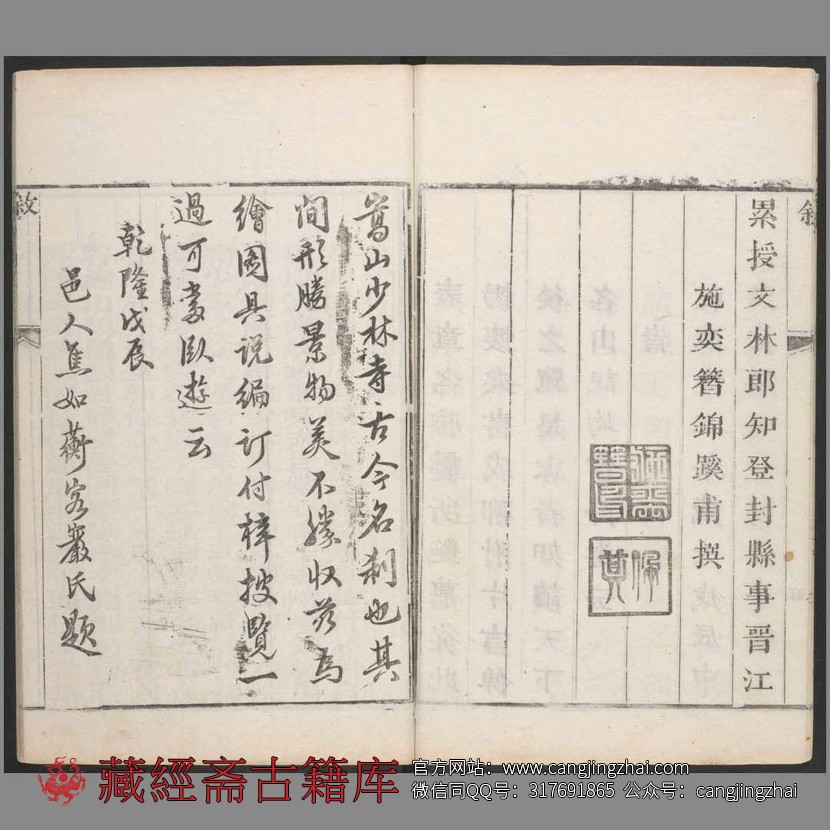 敘
累授文林郎知登封縣事晉江
施奕簪錦蹊甫撰
施奕簪印
嵩山少林寺古今名刹也其
間形勝景物美不勝收茲為
繪圖具說編訂付梓披覽一
過可當臥遊云
乾隆戊辰
邑人焦如蘅客巖氏題
敘
藏經斋古籍库
官方网站：www.cangjingzhai.com
微信同QQ号：317691865 公众号：cangjingzhai